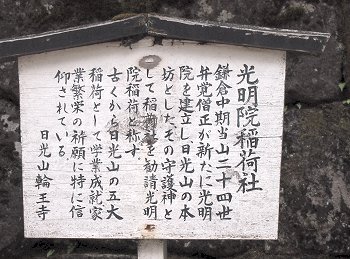 光明院稲荷社
鎌倉中期当山二十四世
弁覚僧正が新たに光明
院を建立し日光山の本
坊としたその守護神と
して稲荷社を勧請光明
院稲荷と称す
古くから日光山の五大
稲荷として学業成就家
業繁栄の祈願に特に信
仰されている
日光山輪王寺